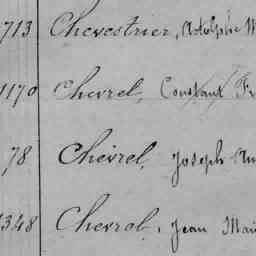 713 Chevestrier, Adolphe M
1170 Chevrel, Constant Fr
78 Chevrel, Joseph An
1348 Chevrol, Jean Mari